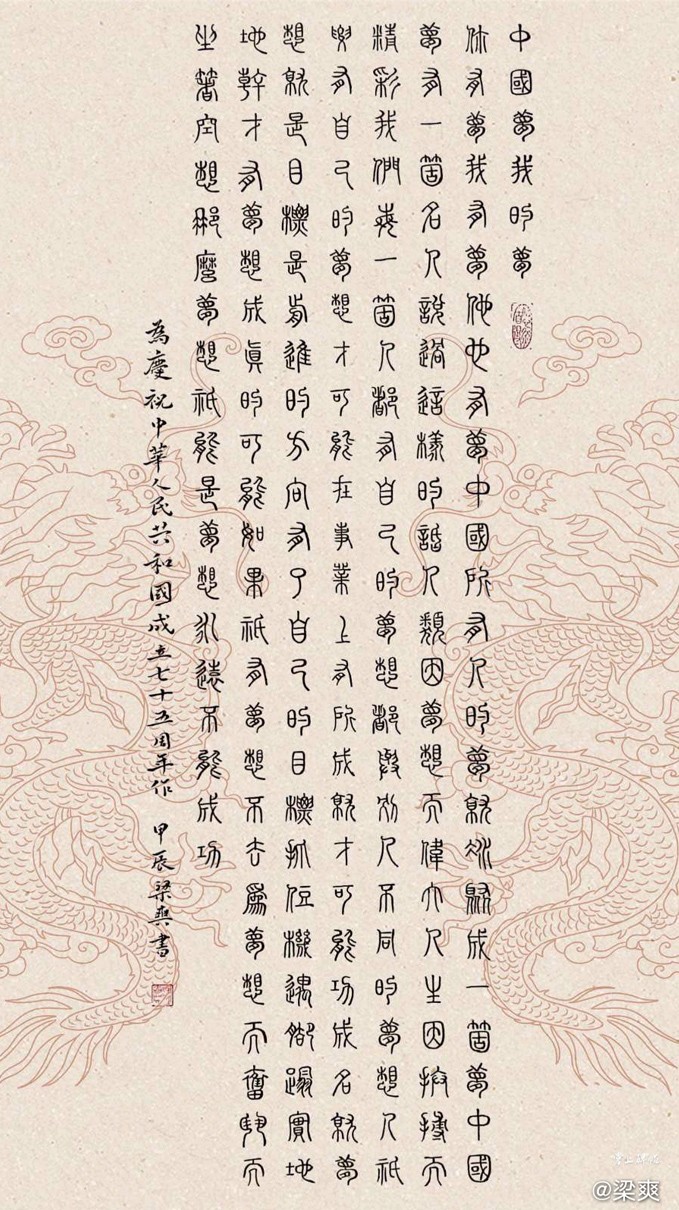 中國夢我的夢
你有夢我有夢他也有夢中國所有人的夢就凝聚成一箇夢中國
夢有一箇名人說過這樣的話人類因夢想而偉大人生因拼搏而
精彩我們每一箇人都有自己的夢想都別人不同的夢想人祇
要有自己的夢想才可能在事業上有所成就才可能功成名就夢
想就是目標是前進的方向有了自己的目標抓住機遇腳踏實地
地幹才有夢想成眞的可能如果祇有夢想不去爲夢想而奮鬥而
坐著空想那麼夢想祇能是夢想永遠不能成功
為慶祝中華人民共和國成立七十五周年作 甲辰梁爽書
@梁爽